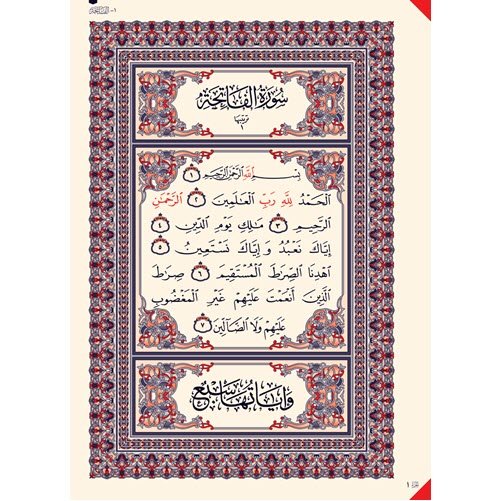 ١- الفاتحة
سُورَةُ الفَاتِحَةِ
ترتيبها
١
بِسْمِ اللَّهِ الرَّحْمَٰنِ الرَّحِيمِ ١
الْحَمْدُ لِلَّهِ رَبِّ الْعَالَمِينَ ٢ الرَّحْمَٰنِ
الرَّحِيمِ ٣ مَالِكِ يَوْمِ الدِّينِ ٤
إِيَّاكَ نَعْبُدُ وَإِيَّاكَ نَسْتَعِينُ ٥
اهْدِنَا الصِّرَاطَ الْمُسْتَقِيمَ ٦ صِرَاطَ
الَّذِينَ أَنْعَمْتَ عَلَيْهِمْ غَيْرِ الْمَغْضُوبِ
عَلَيْهِمْ وَلَا الضَّالِّينَ ٧
وَآيَاتُهَا سَبْعٌ
جزء ١